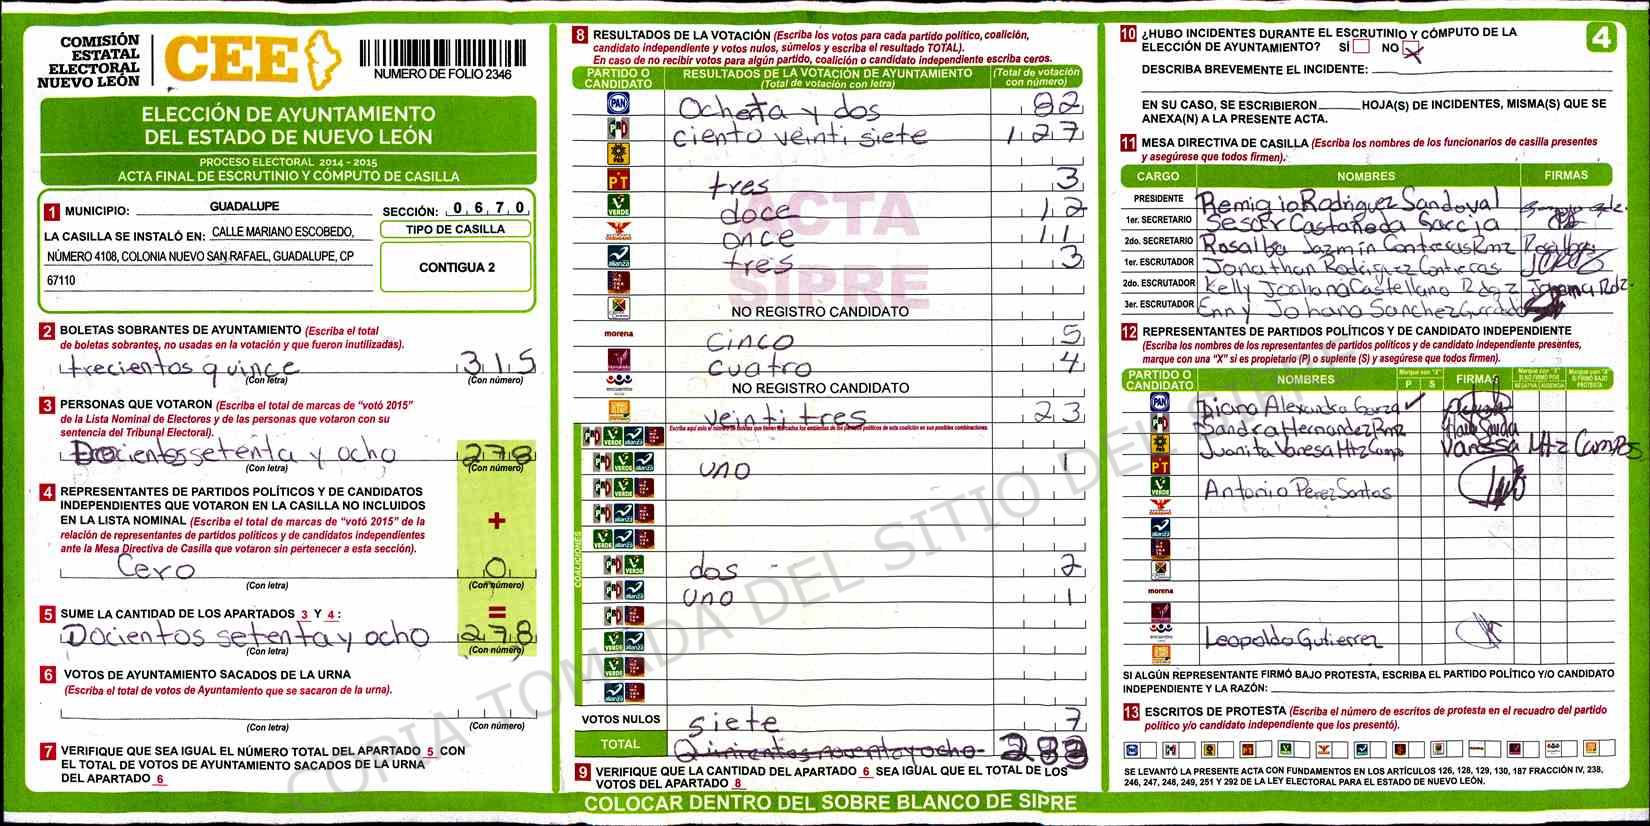 COMISIÓN
ESTATAL
ELECTORAL
NUEVO LEÓN
CEE
NUMERO DE FOLIO 2346
ELECCIÓN DE AYUNTAMIENTO
DEL ESTADO DE NUEVO LEÓN
PROCESO ELECTORAL 2014 - 2015
ACTA FINAL DE ESCRUTINIO Y CÓMPUTO DE CASILLA
1 MUNICIPIO: GUADALUPE SECCIÓN: 0 6 7 0
LA CASILLA SE INSTALÓ EN: CALLE MARIANO ESCOBEDO,
NÚMERO 4108, COLONIA NUEVO SAN RAFAEL, GUADALUPE, CP
67110
TIPO DE CASILLA
CONTIGUA 2
2 BOLETAS SOBRANTES DE AYUNTAMIENTO (Escriba el total
de boletas sobrantes, no usadas en la votación y que fueron inutilizadas).
trecientos quince 315
(Con letra) (Con número)
3 PERSONAS QUE VOTARON (Escriba el total de marcas de “votó 2015”
de la Lista Nominal de Electores y de las personas que votaron con su
sentencia del Tribunal Electoral).
Docientos setenta y ocho 278
(Con letra) (Con número)
4 REPRESENTANTES DE PARTIDOS POLÍTICOS Y DE CANDIDATOS
INDEPENDIENTES QUE VOTARON EN LA CASILLA NO INCLUIDOS
EN LA LISTA NOMINAL (Escriba el total de marcas de “votó 2015” de la
relación de representantes de partidos políticos y de candidatos independientes
ante la Mesa Directiva de Casilla que votaron sin pertenecer a esta sección).
+
Cero 0
(Con letra) (Con número)
5 SUME LA CANTIDAD DE LOS APARTADOS 3 Y 4 :
=
Docientos setenta y ocho 278
(Con letra) (Con número)
6 VOTOS DE AYUNTAMIENTO SACADOS DE LA URNA
(Escriba el total de votos de Ayuntamiento que se sacaron de la urna).
(Con letra) (Con número)
7 VERIFIQUE QUE SEA IGUAL EL NÚMERO TOTAL DEL APARTADO 5 CON
EL TOTAL DE VOTOS DE AYUNTAMIENTO SACADOS DE LA URNA
DEL APARTADO 6
8 RESULTADOS DE LA VOTACIÓN (Escriba los votos para cada partido político, coalición,
candidato independiente y votos nulos, súmelos y escriba el resultado TOTAL).
En caso de no recibir votos para algún partido, coalición o candidato independiente escriba ceros.
PARTIDO O CANDIDATO RESULTADOS DE LA VOTACIÓN DE AYUNTAMIENTO (Total de votación con letra) (Total de votación con número)
PAN Ocheta y dos 82
PRI ciento veinti siete 127
PRD
PT tres 3
VERDE doce 12
once 11
alianza tres 3
NO REGISTRO CANDIDATO
morena cinco 5
cuatro 4
encuentro NO REGISTRO CANDIDATO
veinti tres 23
COALICIONES
uno 1
dos 2
uno 1
VOTOS NULOS siete 7
TOTAL Quinientos noventa y ocho
9 VERIFIQUE QUE LA CANTIDAD DEL APARTADO 6 SEA IGUAL QUE EL TOTAL DE LOS
VOTOS DEL APARTADO 8
COLOCAR DENTRO DEL SOBRE BLANCO DE SIPRE
ACTA
SIPRE
COPIA TOMADA DEL SITIO DEL SIPRE
4
10 ¿HUBO INCIDENTES DURANTE EL ESCRUTINIO Y CÓMPUTO DE LA
ELECCIÓN DE AYUNTAMIENTO? SÍ NO X
DESCRIBA BREVEMENTE EL INCIDENTE:
EN SU CASO, SE ESCRIBIERON HOJA(S) DE INCIDENTES, MISMA(S) QUE SE
ANEXA(N) A LA PRESENTE ACTA.
11 MESA DIRECTIVA DE CASILLA (Escriba los nombres de los funcionarios de casilla presentes
y asegúrese que todos firmen).
CARGO NOMBRES FIRMAS
PRESIDENTE Remigio Rodriguez Sandoval
1er. SECRETARIO Sesar Castañeda Garcia
2do. SECRETARIO Rosalba Jazmin Contreras Rmz
1er. ESCRUTADOR Jonathan Rodriguez Contreras
2do. ESCRUTADOR Kelly Johana Castellano Rdgz
3er. ESCRUTADOR Enny Johana Sanchez
12 REPRESENTANTES DE PARTIDOS POLÍTICOS Y DE CANDIDATO INDEPENDIENTE
(Escriba los nombres de los representantes de partidos políticos y de candidato independiente presentes,
marque con una “X” si es propietario (P) o suplente (S) y asegúrese que todos firmen).
PARTIDO O CANDIDATO NOMBRES P S FIRMAS
PAN Diana Alexandra Garza ✓
Sandra Hernandez Rmz
Juanita Vanesa Mtz Campo Vanessa Mtz Campos
PT
VERDE Antonio Perez Santos
morena
Leopoldo Gutierrez
SI ALGÚN REPRESENTANTE FIRMÓ BAJO PROTESTA, ESCRIBA EL PARTIDO POLÍTICO Y/O CANDIDATO
INDEPENDIENTE Y LA RAZÓN:
13 ESCRITOS DE PROTESTA (Escriba el número de escritos de protesta en el recuadro del partido
político y/o candidato independiente que los presentó).
SE LEVANTÓ LA PRESENTE ACTA CON FUNDAMENTOS EN LOS ARTÍCULOS 126, 128, 129, 130, 187 FRACCIÓN IV, 238,
246, 247, 248, 249, 251 Y 292 DE LA LEY ELECTORAL PARA EL ESTADO DE NUEVO LEÓN.